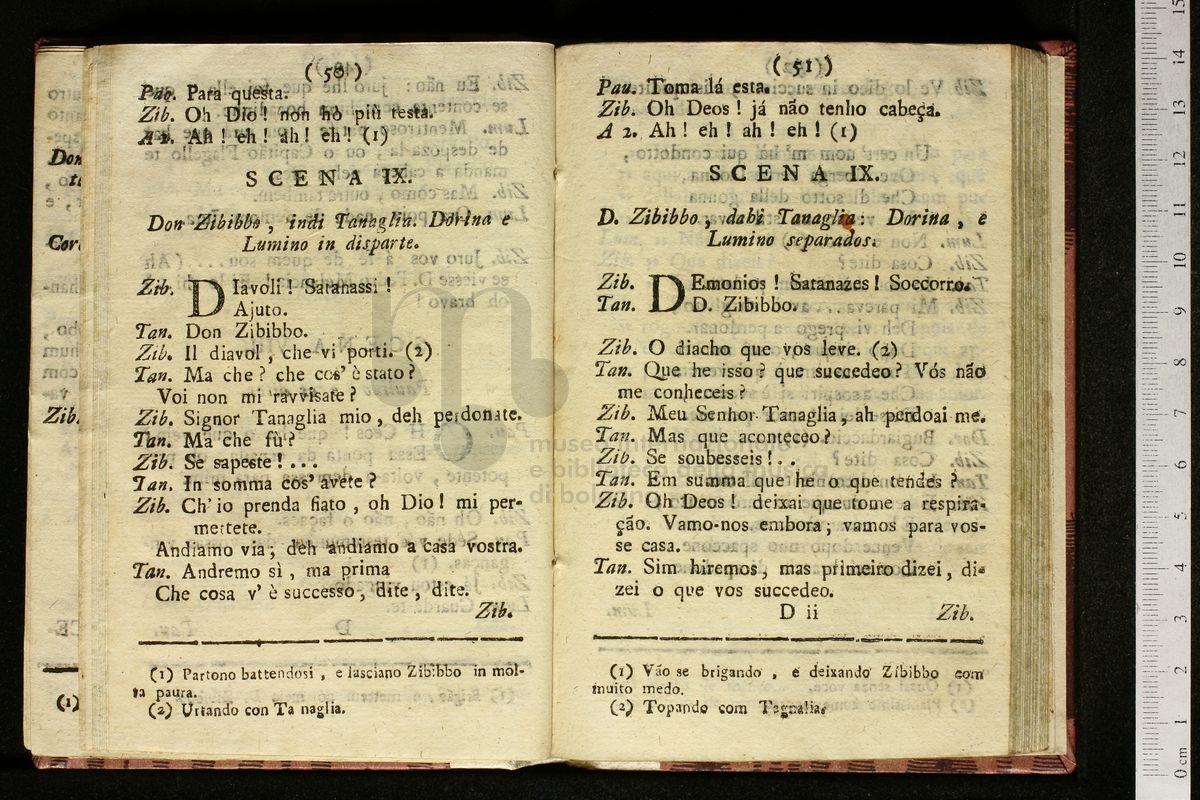 (50)
Pau. Para questa.
Zib. Oh Dio! non hò più testa.
A 2. Ah! eh! ah! eh! (1)
SCENA IX.
Don Zibibbo, indi Tanaglia. Dorina e
Lumino in disparte.
Zib. DIavoli! Satanassi!
Ajuto.
Tan. Don Zibibbo.
Zib. Il diavol, che vi porti. (2)
Tan. Ma che? che cos' è stato?
Voi non mi ravvisate?
Zib. Signor Tanaglia mio, deh perdonate.
Tan. Ma che fù?
Zib. Se sapeste!...
Tan. In somma cos' avete?
Zib. Ch' io prenda fiato, oh Dio! mi per-
mettete.
Andiamo via; deh andiamo a casa vostra.
Tan. Andremo sì, ma prima
Che cosa v' è successo, dite, dite.
Zib.
(1) Partono battendosi, e lasciano Zibibbo in mol-
ta paura.
(2) Urtando con Ta naglia.
(51)
Pau. Toma lá esta.
Zib. Oh Deos! já não tenho cabeça.
A 2. Ah! eh! ah! eh! (1)
SCENA IX.
D. Zibibbo, dahi Tanaglia: Dorina, e
Lumino separados.
Zib. DEmonios! Satanazes! Soccorro.
Tan. D. Zibibbo.
Zib. O diacho que vos leve. (2)
Tan. Que he isso? que succedeo? Vós não
me conheceis?
Zib. Meu Senhor Tanaglia, ah perdoai me.
Tan. Mas que aconteceo?
Zib. Se soubesseis!..
Tan. Em summa que he o que tendes?
Zib. Oh Deos! deixai que tome a respira-
ção. Vamo-nos embora; vamos para vos-
se casa.
Tan. Sim hiremos, mas primeiro dizei, di-
zei o que vos succedeo.
D ii Zib.
(1) Vão se brigando, e deixando Zibibbo com
muito medo.
(2) Topando com Tagnalia.
museo internazionale
e biblioteca della musica
di bologna